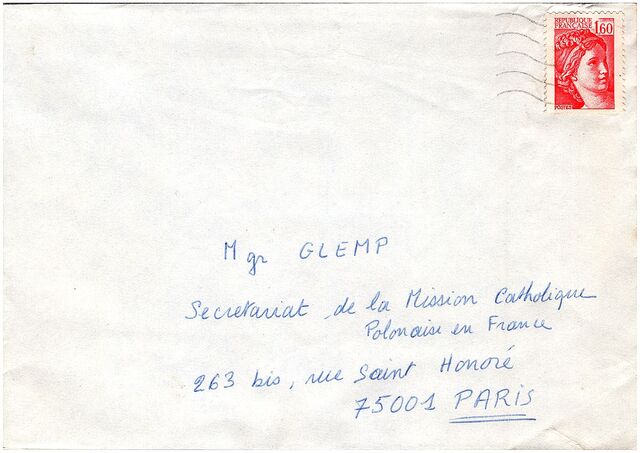 REPUBLIQUE
FRANÇAISE 1,60
Mgr GLEMP
Secretariat de la Mission Catholique
Polonaise en France
263 bis, rue Saint Honoré
75001 PARIS